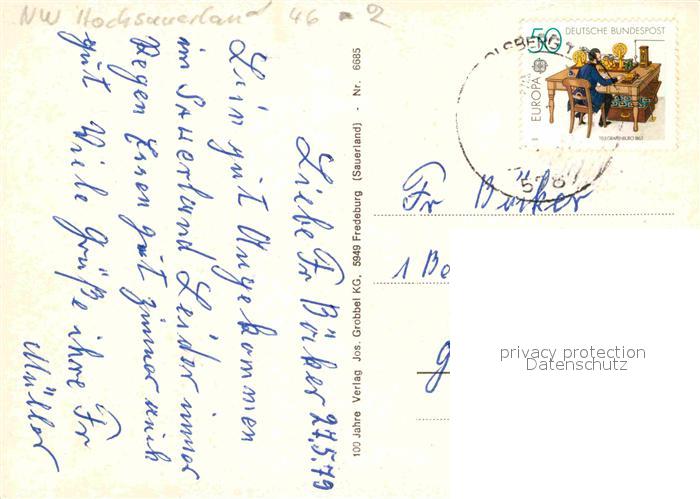 NW Hochsauerland 46 - 2
Liebe Fr Böker 27.5.79
Sein gut Angekommen
im Sauerland Leider immer
Regen Essen gut Zimmer auch
gut Viele Grüße ihre Fr
Müller
100 Jahre Verlag Jos. Grobbel KG, 5949 Fredeburg (Sauerland) - Nr. 6685
OLSBERG 1
578
50 DEUTSCHE BUNDESPOST
EUROPA
TELEGRAFENBÜRO 1863
Fr Böker
1 Be
g
privacy protection
Datenschutz